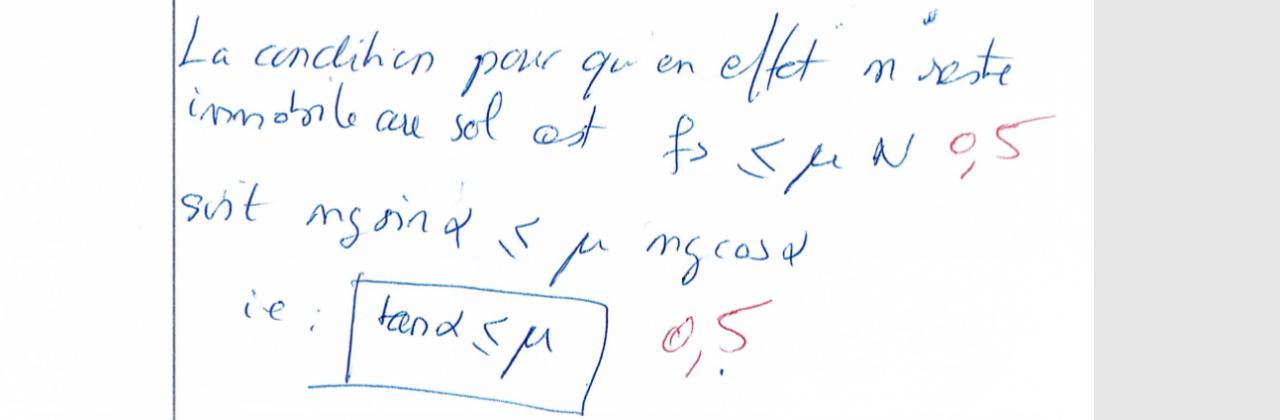 La condition pour qu'en effet m reste
immobile au sol est fs ≤ μ N 0,5
soit mg sin α ≤ μ mg cos α
ie : tan α ≤ μ 0,5